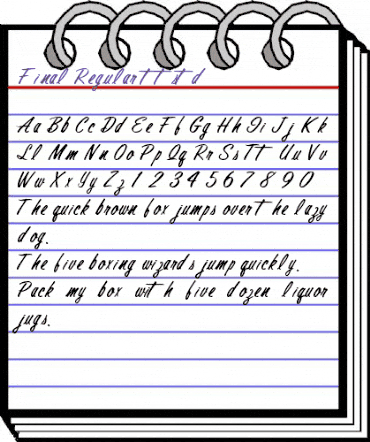 Final Regularttstd
Aa Bb Cc Dd Ee Ff Gg Hh Ii Jj Kk
Ll Mm Nn Oo Pp Qq Rr Ss Tt Uu Vv
Ww Xx Yy Zz 1 2 3 4 5 6 7 8 9 0
The quick brown fox jumps over the lazy
dog.
The five boxing wizards jump quickly.
Pack my box with five dozen liquor
jugs.